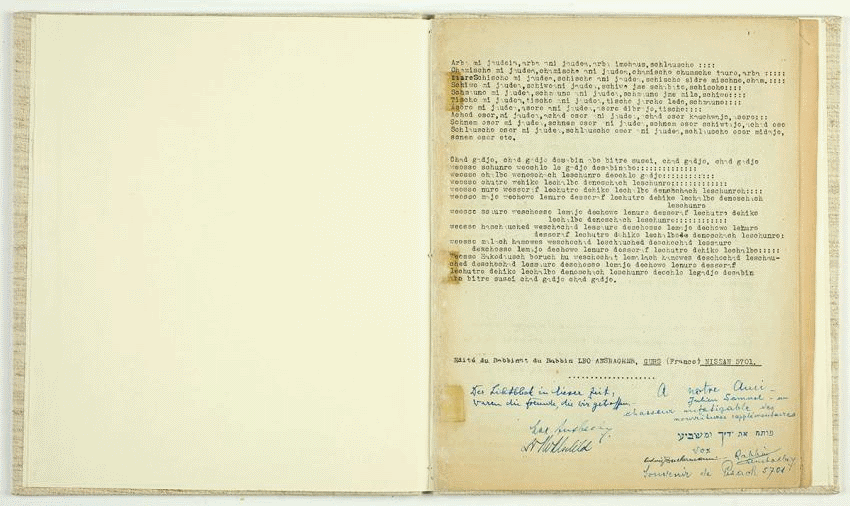 Arba mi jaudeia, arba ani jaudea, arba imohaus, schlausche ::::
Chamische mi jaudea, chamische ani jaudea, chamische chumsche tauro, arba :::::
Schische mi jaudea, schische ani jaudea, schische sidre mischne, cham. ::::
Schiwo mi jaudea, schiwo ani jaudea, schiwo jme schabato, schische::::
Schmauno mi jaudea, schmauno ani jaudea, schmauno jme milo, schiwo::::
Tischo mi jaudea, tischo ani jaudea, tischo jarche ledo, schmauno::::
Asoro mi jaudea, asoro ani jaudea, asoro dibrajo, tischo::::
Achad osor, mi jaudea, achad osor ani jaudea, achad osor kauchwajo, asoro:::
Schnem osor mi jaudea, schnem osor ani jaudea, schnem osor schiwtajo, achad oso
Schlausche osor mi jaudea, schlausche osor ani jaudea, schlausche osor midajo,
scnem osor etc.
Chad gadjo, chad gadjo desabin abo bitre susei, chad gadjo, chad gadjo
weosso schunro weochlo le gadjo desabinabo::::::::::::::
weosso chalbo wenoschach leschunro deochlo gadjo::::::::::::
weosso chutro wehiko lechalbo denoschach leschunro::::::::::::
weosso nuro wessoraf lechutro dehiko lechalbo denoschach leschunroh::::
weosso majo wechowo lenuro dessoraf lechutro dehiko lechalbo denoschach
leschunro
weosso ssauro weschosso lemajo dechowo lenuro dessoraf lechutro dehiko
lechalbo denoschach leschunro::::::::::::
weosso haschauched weschochad lessauro deschosso lemajo dechowo lenuro
dessoraf lechutro dehiko lechalbode denoschach leschunro:
weosso malach hamowes weschochad leschauched deschochad lessauro
deschosso lemajo dechowo lenuro dessoraf lechutro dehiko lechalbo:::::
weosso Hakodausch boruch hu weschochat lemalach hamowes deschochad leschau-
ched deschochad lessauro deschosso lemajo dechowo lenuro dessoraf
lechutro dehiko lechalbo denoschach leschunro deochlo legadjo desabin
abo bitre susei chad gadjo chad gadjo.
Edité du Rabbinat du Rabbin LEO ANSBACHER, GURS (France) NISSAN 5701.
Der Lichtblick in dieser Zeit,
waren die Freunde, die wir getroffen
A notre Ami
Julien Samuel - un
chasseur infatigable des
nourritures supplémentaires
פותח את ידיך ומשביע
Leo Ansbacher
Rabbin
Souvenir de Pesach 5701